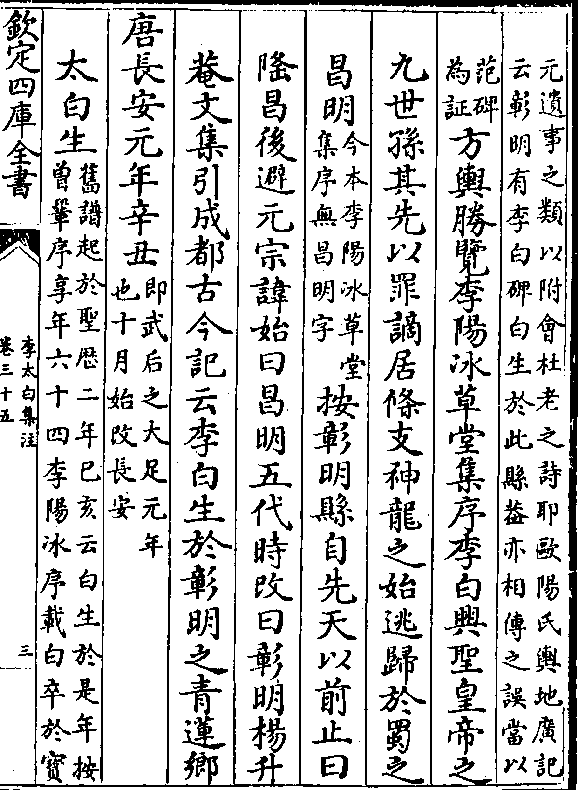 元遺事之類以附會杜老之詩耶歐陽氏輿地廣記
云彰明有李白碑白生於此縣葢亦相傳之誤當以
范碑
為証
方輿勝覽李陽冰草堂集序李白興聖皇帝之
九世孫其先以罪謫居條支神龍之始逃歸於蜀之
昌明
今本李陽冰草堂
集序無昌明字
按彰明縣自先天以前止曰
隆昌後避元宗諱始曰昌明五代時改曰彰明楊升
菴文集引成都古今記云李白生於彰明之青蓮鄉
唐長安元年辛丑
即武后之大足元年
也十月始改長安
太白生
舊譜起於聖厯二年己亥云白生於是年按
曾鞏序享年六十四李陽冰序載白卒於寶
欽定四庫全書
李太白集注
卷三十五
三